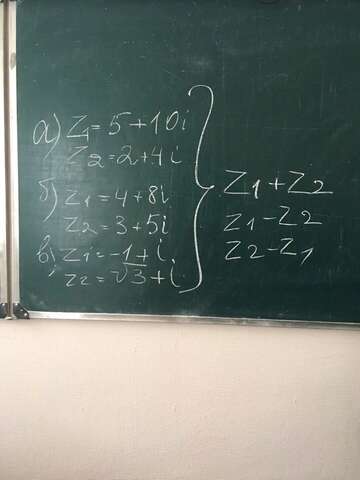 а) Z1 = 5 + 10i
Z2 = 2 + 4i
б) Z1 = 4 + 8i
Z2 = 3 + 5i
в) Z1 = -1 + i
Z2 = √3 + i
Z1 + Z2
Z1 - Z2
Z2 - Z1